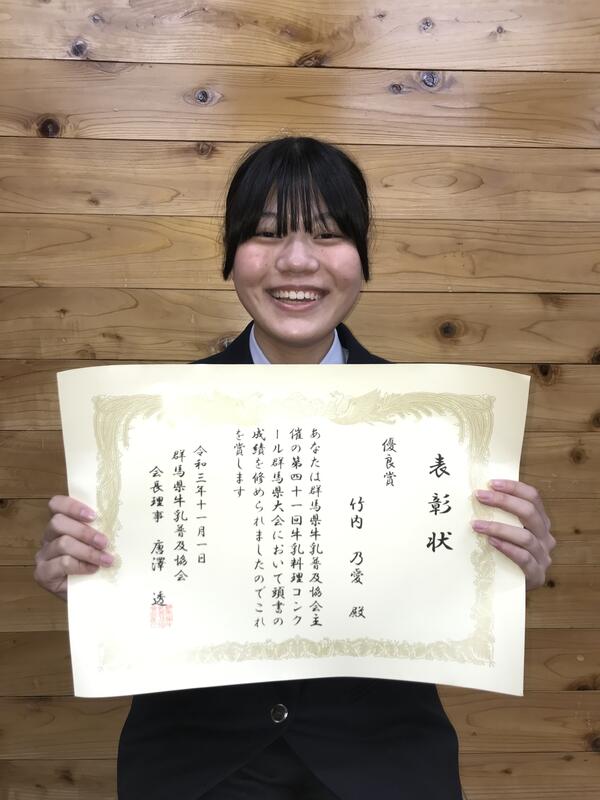 表彰状
優良賞
竹内 乃愛 殿
あなたは群馬県牛乳普及協会主
催の第四十一回牛乳料理コンク
ール群馬県大会において頭書の
成績を修められましたのでこれ
を賞します
令和三年十一月一日
群馬県牛乳普及協会
会長理事 唐澤 透